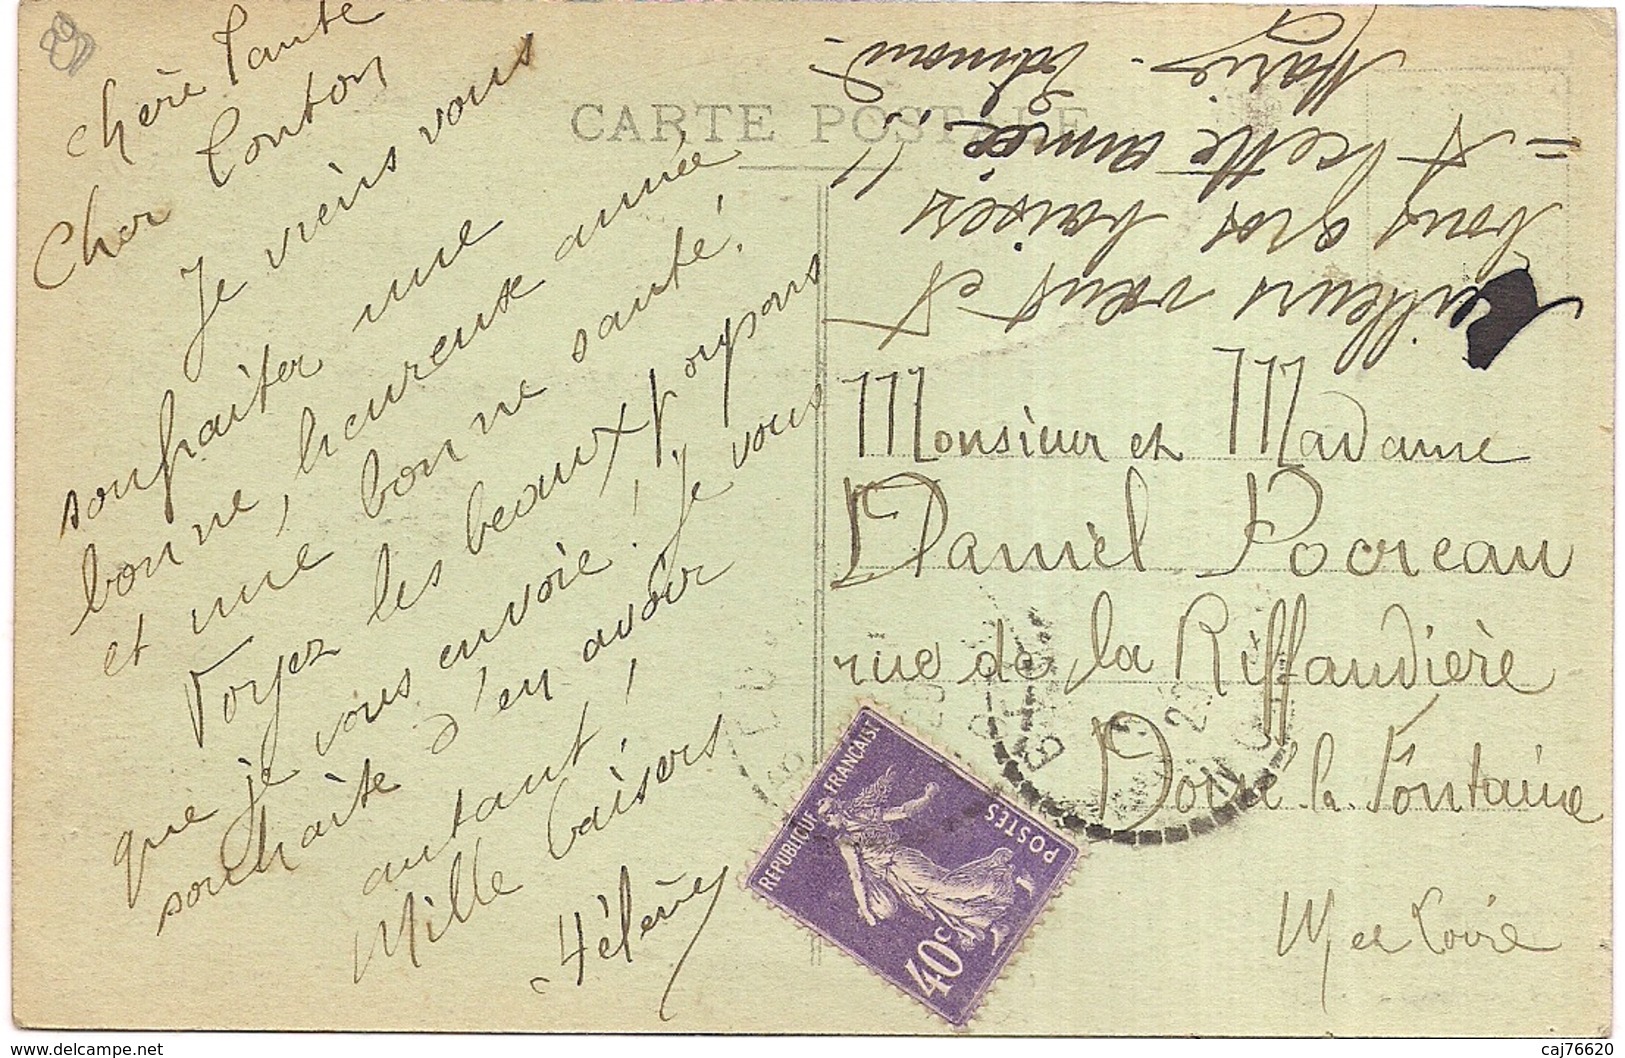 Chère Tante
Cher Tonton
Je viens vous
souhaiter une
bonne, heureuse année
et une bonne santé!
Voyez les beaux
que je vous envoie! Je vous
souhaite d'en avoir
autant!
Mille baisers
Hélène
CARTE POSTALE
meilleurs vœux et
bons gros baisers
A cette année!
Marie. Edmond.
Monsieur et Madame
Daniel Pocreau
rue de la Riffaudière
Doué la Fontaine
M et Loire
REPUBLIQUE FRANÇAISE
POSTES
40c
www.delcampe.net
caj76620